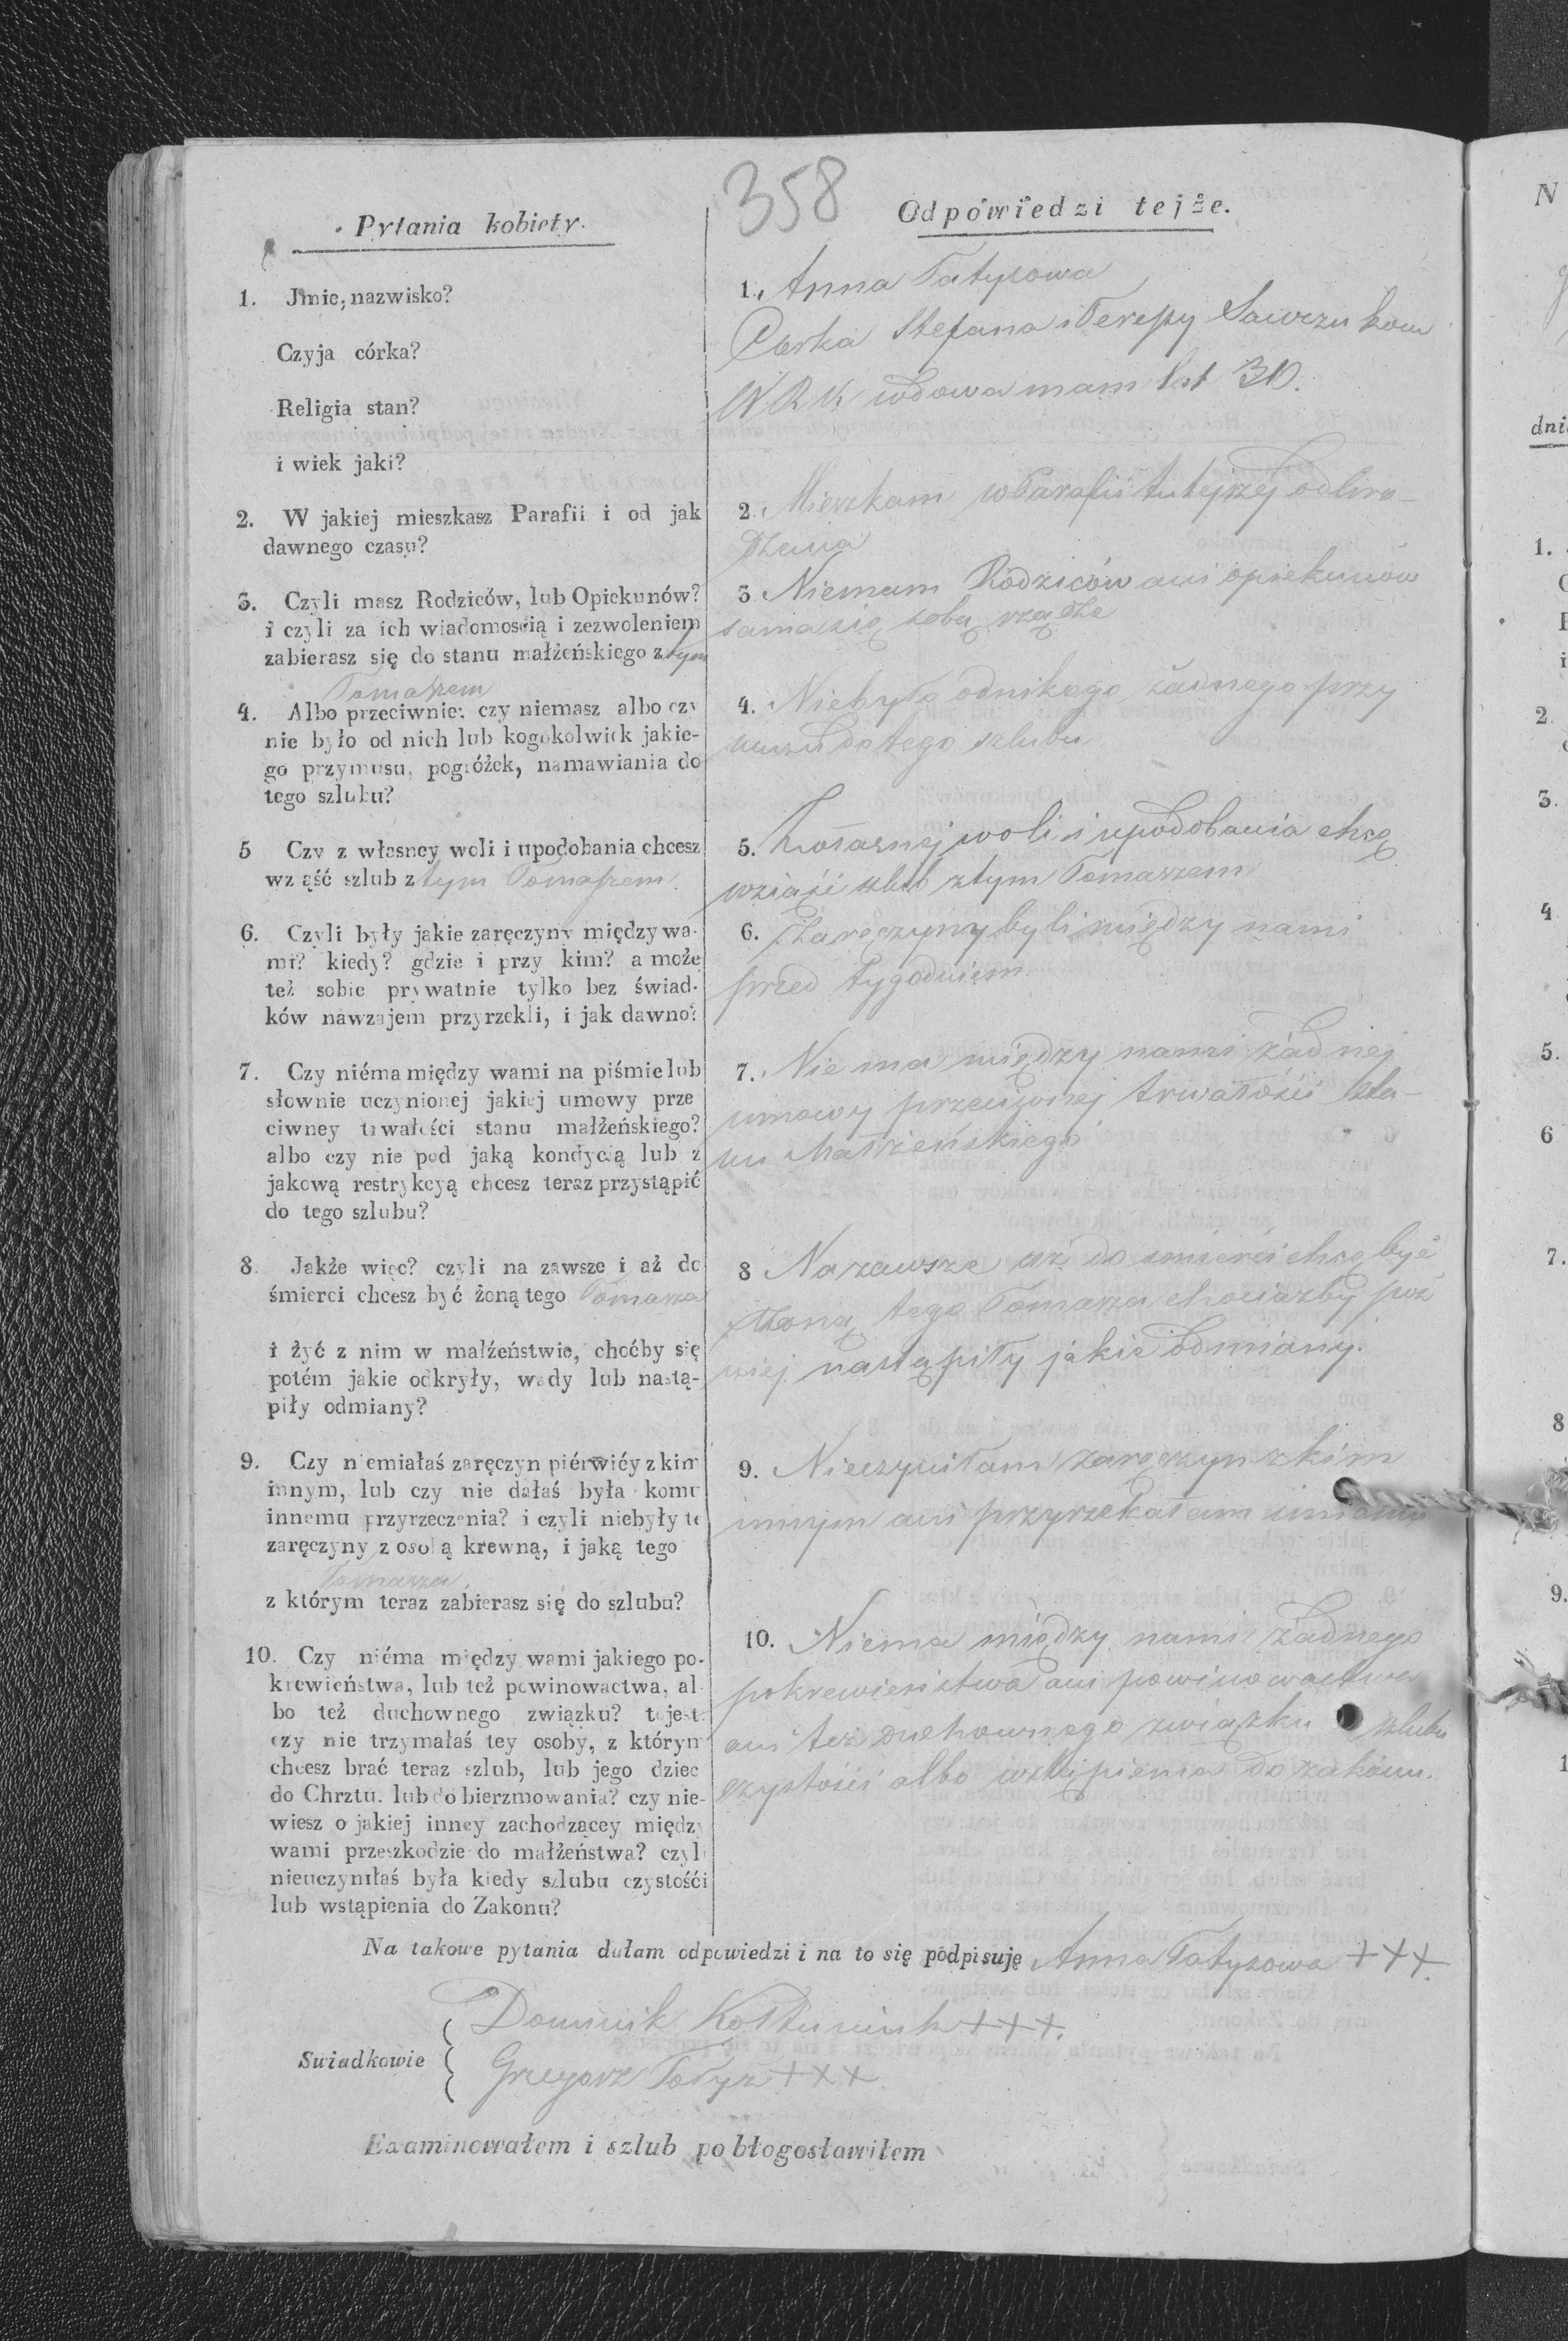 358
Pytania kobiety.
1. Jmie, nazwisko?
Czyja córka?
Religia stan?
i wiek jaki?
2. W jakiej mieszkasz Parafii i od jak
dawnego czasu?
3. Czyli masz Rodziców, lub Opiekunów?
i czyli za ich wiadomością i zezwoleniem
zabierasz się do stanu małżeńskiego z tym
Tomaszem
4. Albo przeciwnie: czy niemasz albo czy
nie było od nich lub kogokolwiek jakie-
go przymusu, pogróżek, namawiania do
tego szlubu?
5 Czy z własney woli i upodobania chcesz
wziąść szlub z tym Tomaszem
6. Czyli były jakie zaręczyny między wa-
mi? kiedy? gdzie i przy kim? a może
też sobie prywatnie tylko bez świad-
ków nawzajem przyrzekli, i jak dawno?
7. Czy niéma między wami na piśmie lub
słownie uczynionej jakiej umowy prze
ciwney trwałości stanu małżeńskiego?
albo czy nie pod jaką kondycią lub z
jakową restrykcyą chcesz teraz przystąpić
do tego szlubu?
8. Jakże więc? czyli na zawsze i aż do
śmierci chcesz być żoną tego Tomasza
i żyć z nim w małżeństwie, choćby się
potém jakie odkryły, wady lub nastą-
piły odmiany?
9. Czy niemiałaś zaręczyn piérwićy z kim
innym, lub czy nie dałaś była komu
innemu przyrzeczenia? i czyli niebyły te
zaręczyny z osobą krewną, i jaką tego
Tomasza
z którym teraz zabierasz się do szlubu?
10. Czy niéma między wami jakiego po-
krewieństwa, lub też powinowactwa, al-
bo też duchownego związku? to jest:
czy nie trzymałaś tey osoby, z którym
chcesz brać teraz szlub, lub jego dziec
do Chrztu. lub do bierzmowania? czy nie-
wiesz o jakiej inney zachodzącey między
wami przeszkodzie do małżeństwa? czyli
nieuczyniłaś była kiedy szlubu czystośći
lub wstąpienia do Zakonu?
Odpówiedzi tejże.
1. Anna Tatysowa
Corka Stefana i Teressy Sawczuków
W R K wdowa mam lat 30.
2. Mieszkam w Parafii tutejszéj od Uro-
dzenia
3. Niemam Rodziców ani opiekunów
sama się sobą rządze
4. Niebyło od nikogo żadnego przy
musu do tego szlubu
5. Z własnéj woli i upodobania chcę
wziąść szlub z tym Tomaszem
6. Zaręczyny byli między nami
przed tygodniem
7. Niema między nami żadnéj
umowy przeciwnéj trwałości sta-
nu Małżeńskiego
8 Nazawsze aż do smierci chcę być
żoną tego Tomasza chociażby póź
niéj nastąpiły jakie odmiany.
9. Nieczyniłam zaręczyn z kim
innym ani przyrzekałam innemu
10. Niema między nami żadnego
pokrewieństwa ani powinowactwa
ani też duchownego związku szlubu
czystości albo wstąpienia do zakonu.
Na takowe pytania dałam odpowiedzi i na to się podpisuję Anna Tatysowa +++
Swiadkowie
Dominik +++.
Grzegorz +++.
Examinowałem i szlub pobłogosławiłem
N
dni
1.
2.
3.
4
5.
6
7.
8
9.
1